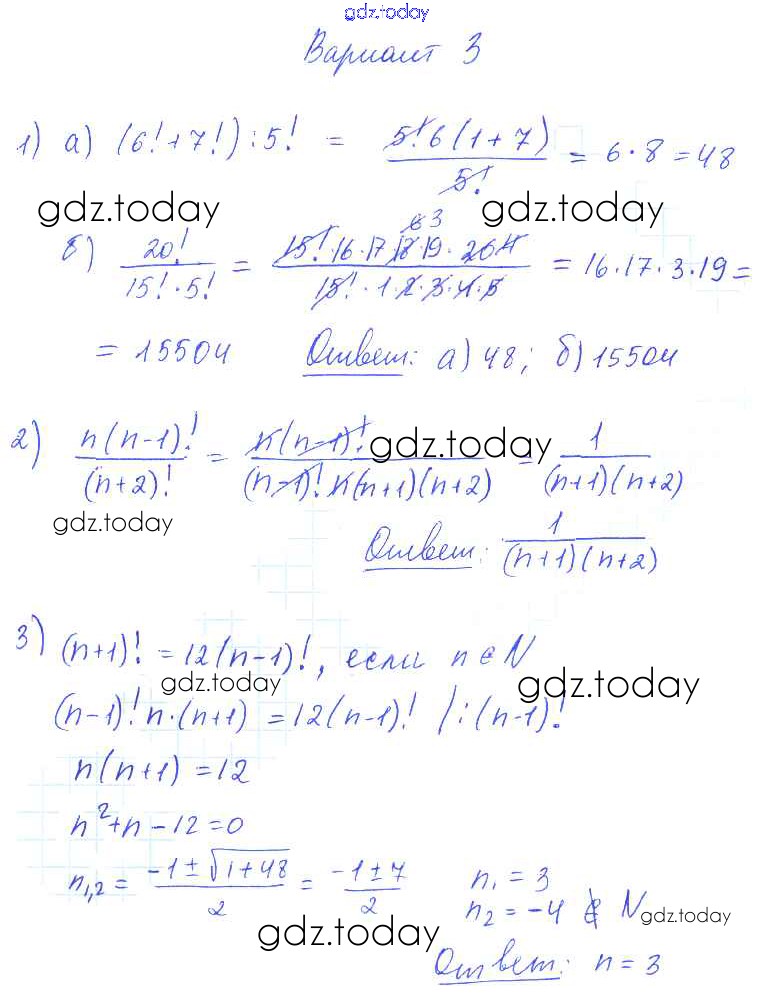 gdz.today
Вариант 3
1) а) (6! + 7!) : 5! = 5! 6 (1 + 7) / 5! = 6 · 8 = 48
gdz.today gdz.today
б) 20! / 15! · 5! = 15! · 16 · 17 · 18 · 19 · 20 / 15! · 1 · 2 · 3 · 4 · 5 = 16 · 17 · 3 · 19 =
= 15504 Ответ: а) 48; б) 15504
2) n(n-1)! / (n+2)! = n(n-1)! / (n-1)! n(n+1)(n+2) = 1 / (n+1)(n+2)
gdz.today
gdz.today
Ответ: 1 / (n+1)(n+2)
3) (n+1)! = 12(n-1)!, если n ∈ N
gdz.today gdz.today
(n-1)! n·(n+1) = 12(n-1)! / : (n-1)!
n(n+1) = 12
n² + n - 12 = 0
n1,2 = -1 ± √1+48 / 2 = -1 ± 7 / 2 n1 = 3
n2 = -4 ∉ N
gdz.today
gdz.today
Ответ: n = 3